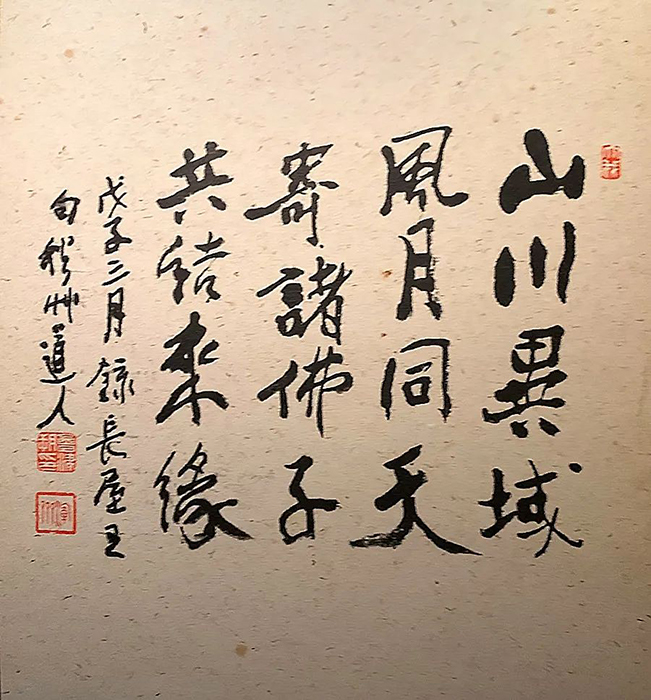 山川異域
風月同天
寄諸佛子
共結来緣
戊子三月錄長屋王
句穆艸道人